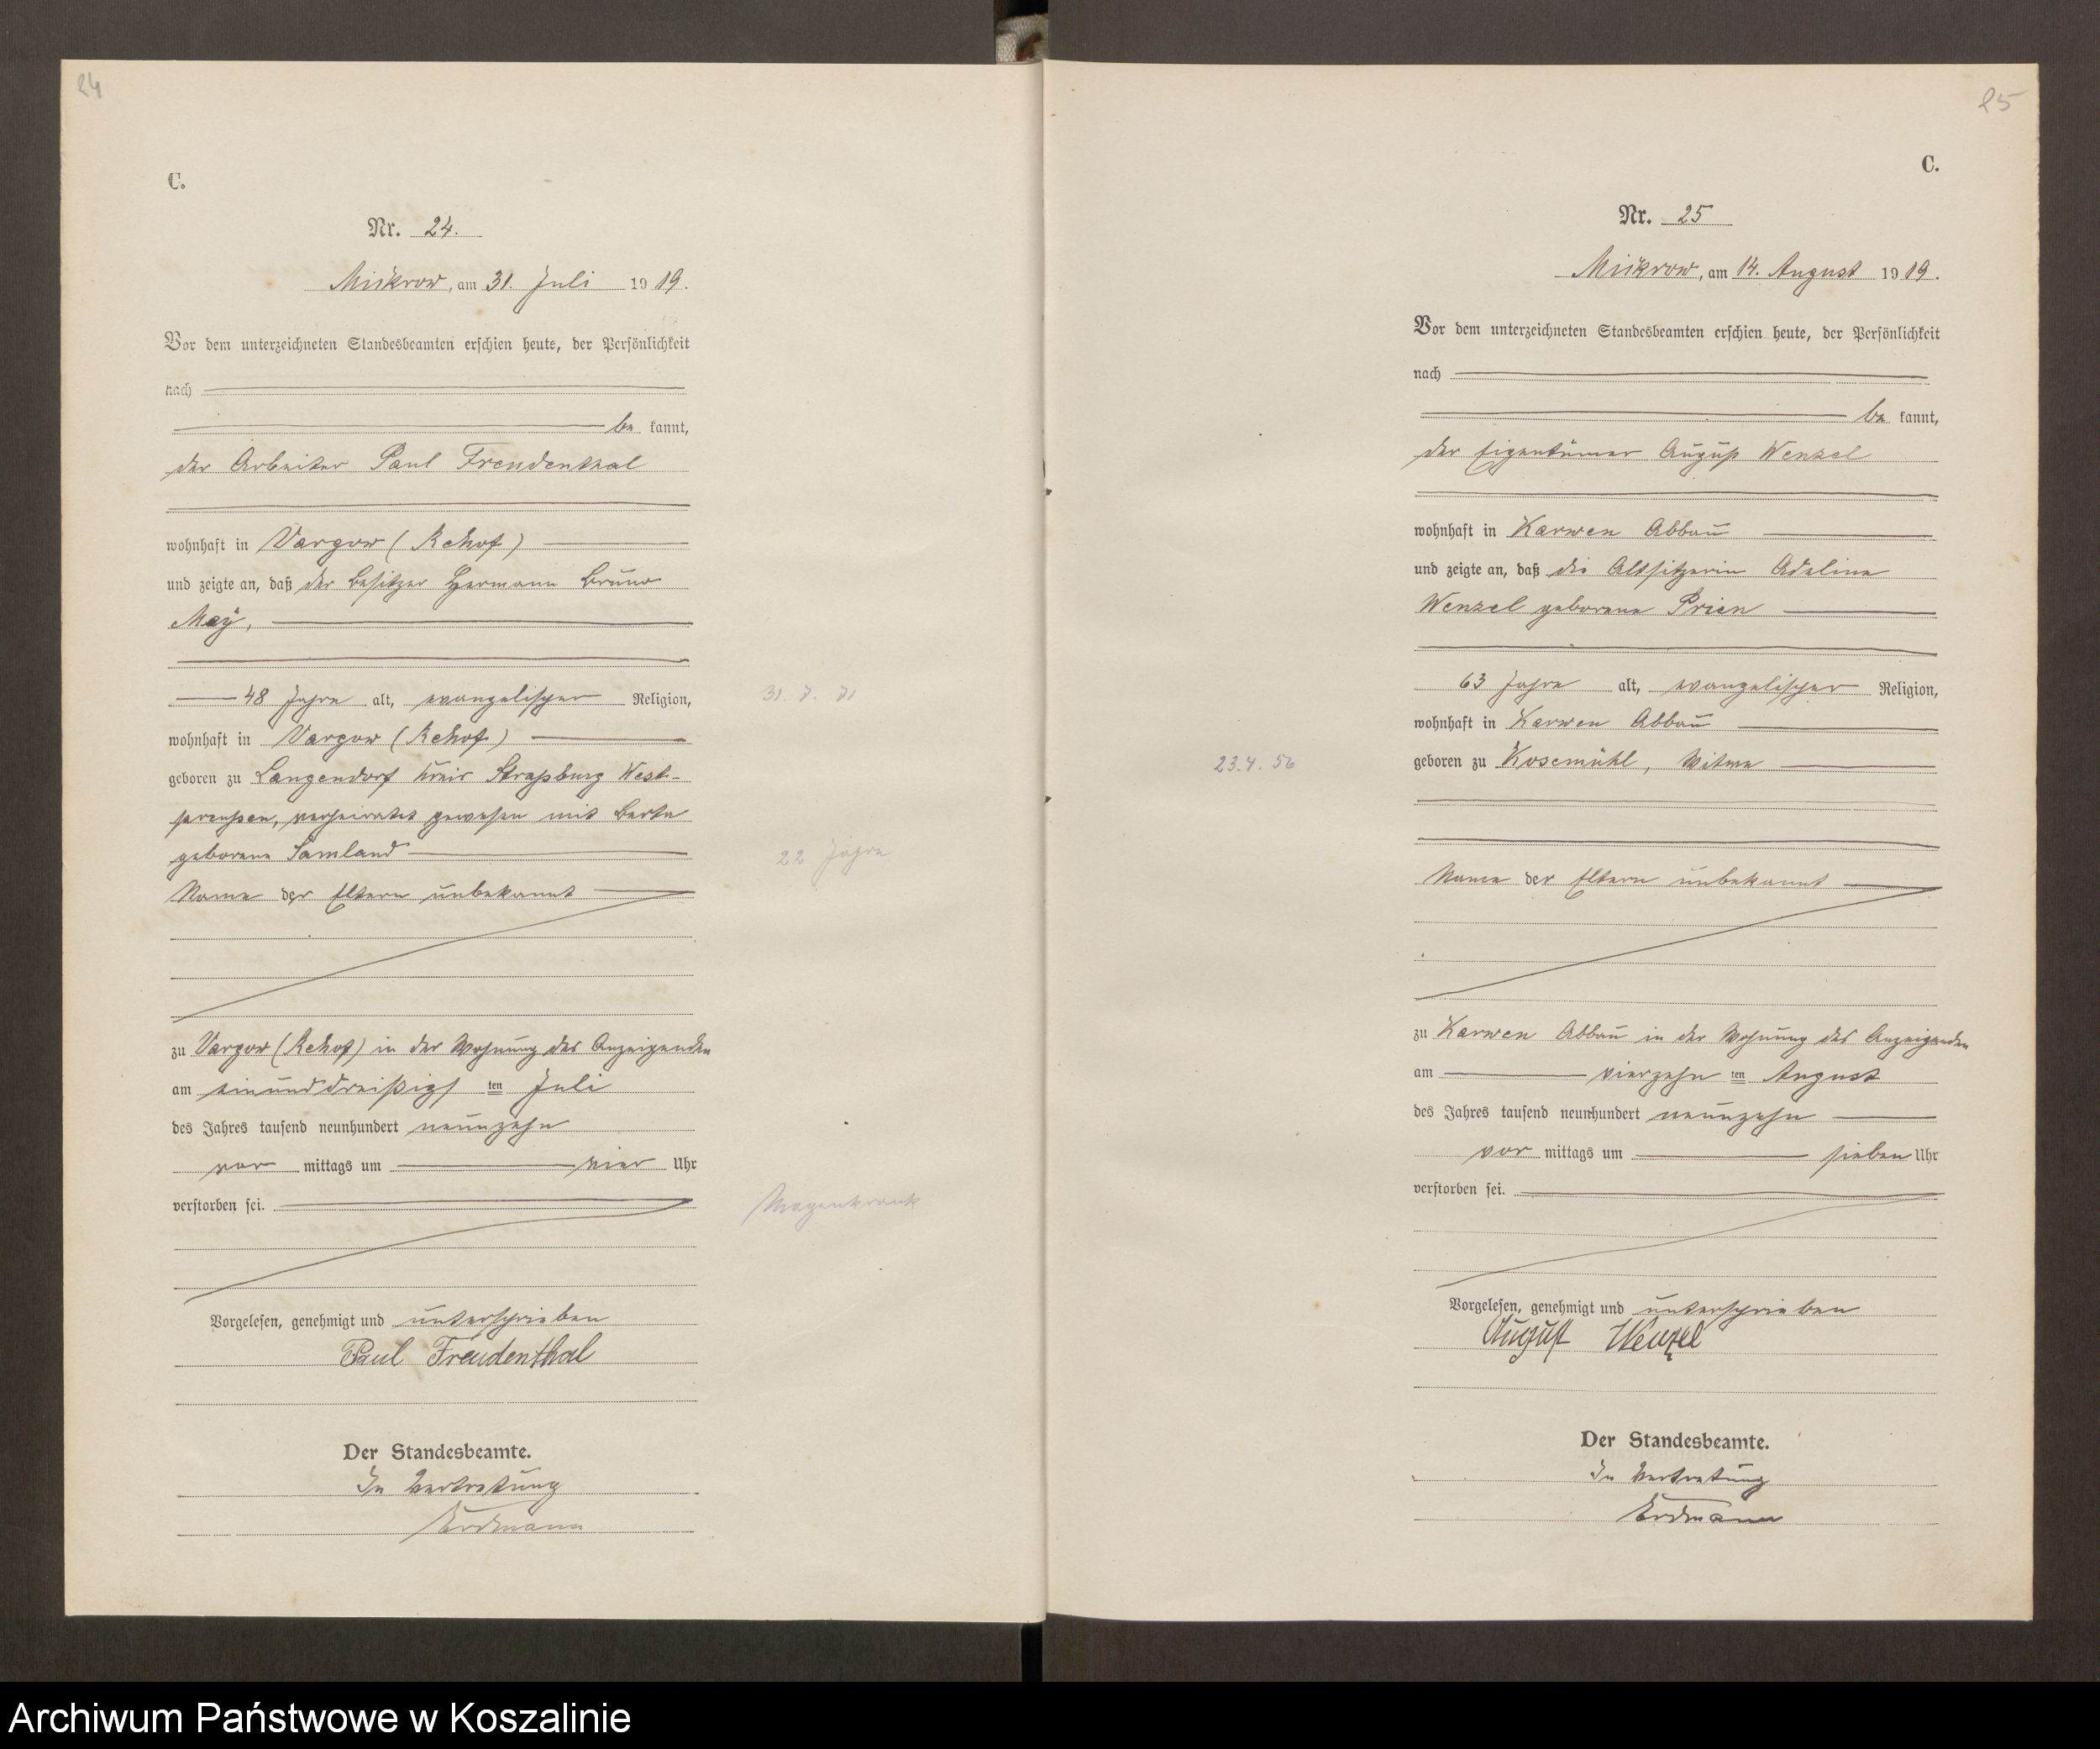 24
C.
Nr. 24.
Mickrow, am 31. Juli 1919.
Vor dem unterzeichneten Standesbeamten erschien heute, der Persönlichkeit
nach
be kannt,
der Arbeiter Paul Freudenthal
wohnhaft in Vargow (Rehof)
und zeigte an, daß der Besitzer Hermann Bruno
May,
48 Jahre alt, evangelischer Religion,
31. 7. 71
wohnhaft in Vargow (Rehof)
geboren zu Langendorf Kreis Straßburg West-
preußen, verheiratet gewesen mit Berta
geborene Samland
22 Jahre
Name der Eltern unbekannt
zu Vargow (Rehof) in der Wohnung des Anzeigenden
am einunddreißigs ten Juli
des Jahres tausend neunhundert neunzehn
vor mittags um vier Uhr
verstorben sei.
Magenkrank
Vorgelesen, genehmigt und unterschrieben
Paul Freudenthal
Der Standesbeamte.
In Vertretung
Erdmann
25
C.
Nr. 25
Mickrow, am 14. August 1919.
Vor dem unterzeichneten Standesbeamten erschien heute, der Persönlichkeit
nach
be kannt,
der Eigentümer August Wenzel
wohnhaft in Karwen Abbau
und zeigte an, daß die Altsitzerin Adeline
Wenzel geborene Prien
63 Jahre alt, evangelischer Religion,
wohnhaft in Karwen Abbau
23.4.56
geboren zu Kosemühl, Witwe
Name der Eltern unbekannt
zu Karwen Abbau in der Wohnung des Anzeigenden
am vierzehn ten August
des Jahres tausend neunhundert neunzehn
vor mittags um sieben Uhr
verstorben sei.
Vorgelesen, genehmigt und unterschrieben
August Wenzel
Der Standesbeamte.
In Vertretung
Erdmann
Archiwum Państwowe w Koszalinie